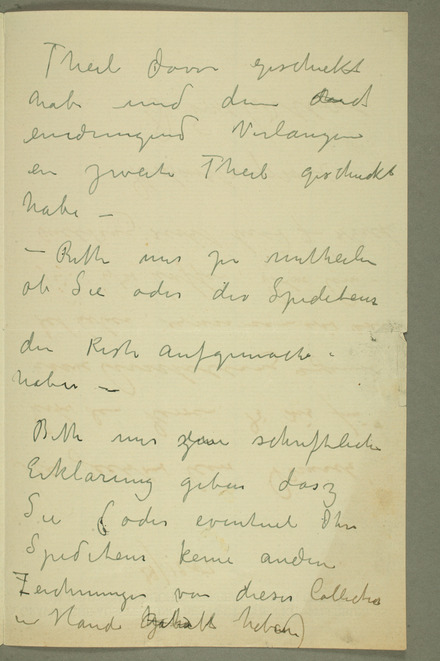 Theil davon geschickt
habe und den
eindringend Verlangen
en zweite Theil geschickt
habe –
– Bitte mir zu mittheilen
ob Sie oder der Spediteur
die Kiste aufgemacht
haben –
Bitte mir schriftliche
Erklärung geben dasz
Sie (oder eventuel Ihr
Spediteur keine andere
Zeichnungen von dieser Collection
in Hande haben)